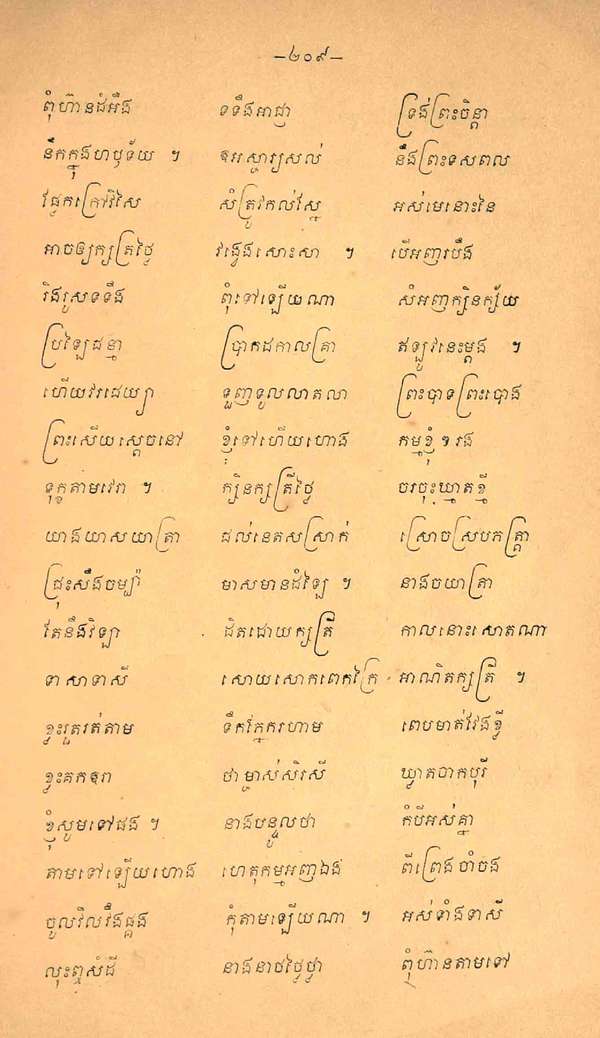 —២០៩—
ពុំហ៊ានដំអឹង ទទឹងអាជ្ញា ទ្រង់ព្រះចិន្តា
នឹកក្នុងហឫទ័យ ។ ឧអស្ចារ្យសល់ នឹងព្រះទសពល
ផ្ទៃកក្រៅវិសៃ សំត្រូវកល់វៃស្ន អស់មេនោះនៃ
អាចឲ្យក្សត្រថ្លៃ វង្វេងសោះសា ។ បើអញរបឹង
រិងរួសទទឹង ពុំទៅឡើយណា សំអញក្សិនក្ស័យ
ប្រឡៃជន្មា ប្រាកដកាលគ្រា ឥឡូវនេះម្តង ។
ហើយវរជេយ្យា ទួញទូលលាតលា ព្រះបាទព្រះបោង
ព្រះសើយស្តេចនៅ ខ្ញុំទៅហើយហោង កម្មខ្ញុំៗរង
ទុក្ខតាមវេរា ។ ក្សិនក្សត្រីថ្លៃ ចរចុះឃ្មាតខ្មី
យាងយាសយាត្រា ដល់នេតសស្រាក់ ស្រោចស្របភត្រ្តា
ជ្រុះសឹងចម្ប៉ា មាសមានដំឡៃ ។ នាងចយាត្រា
តែនឹងវិឡា ដិតដោយក្សត្រី កាលនោះសោតណា
ទាសាទាសី សោយសោកពេកក្រៃ អាណិតក្សត្រី ។
ខ្វះរួតរត់តាម ទឹកភ្នែករហាម ពេបមាត់វែងខ្វី
ខ្វះគកឧរា ថាម្ចាស់សិរសី ឃ្វាតចាកបុរី
ខ្ញុំសូមទៅផង ។ នាងបន្ទូលថា កំបីអស់គ្នា
តាមទៅឡើយហោង ហេតុកម្មអញឯង ពីព្រេងចាំចង
ចូលវិលវឹងផ្គង កុំតាមឡើយណា ។ អស់ទាំងទាសី
លុះឮសំដី នាងនាថថ្លៃថ្លា ពុំហ៊ានតាមទៅ